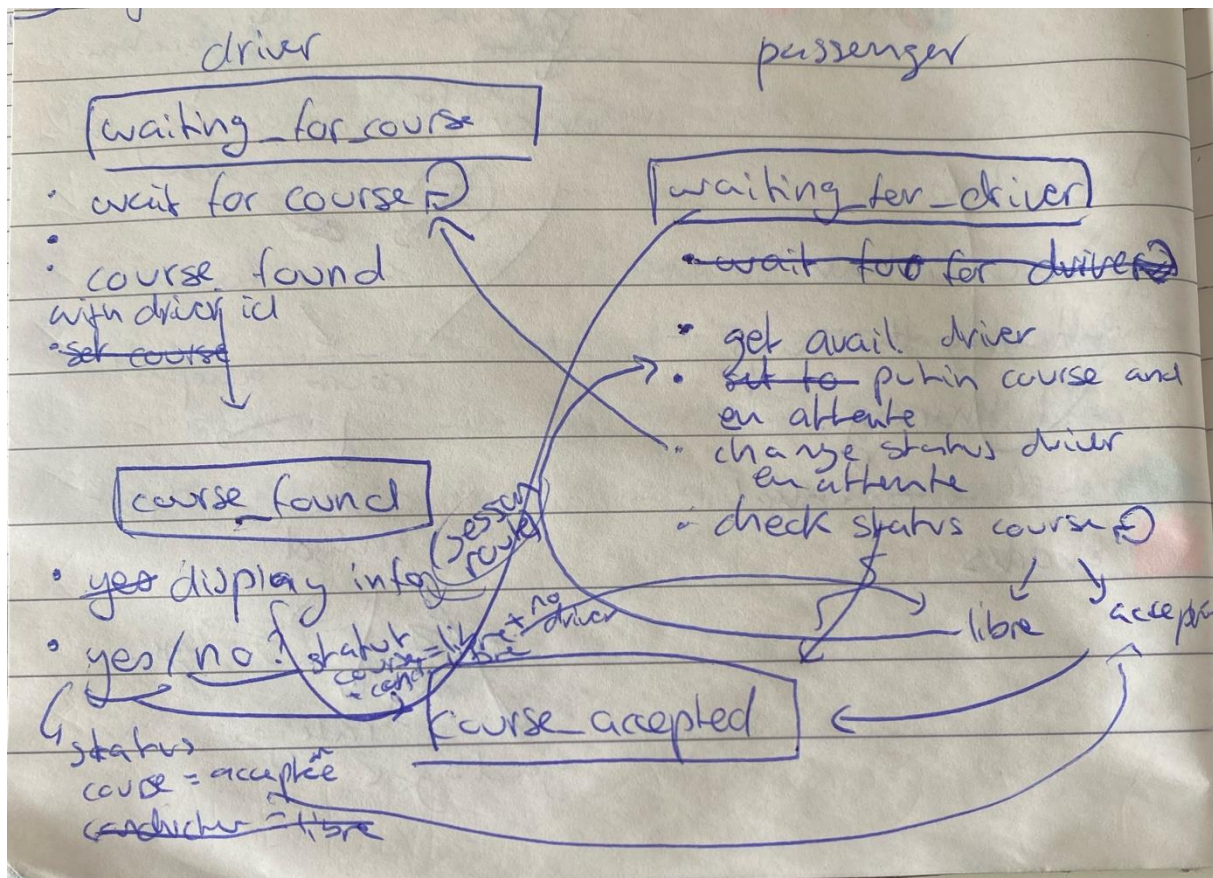 driver
waiting_for_course
• wait for course
•
• course found
with driver id
• set course
course_found
• yes display info
• yes/no?
status
course = libre
+ no
driver
status
course = acceptée
conducteur = libre
session
route
passenger
waiting_for_driver
• wait for for driver
• get avail. driver
• set to put in course and
en attente
• change status driver
en attente
• check status course
libre
course_accepted